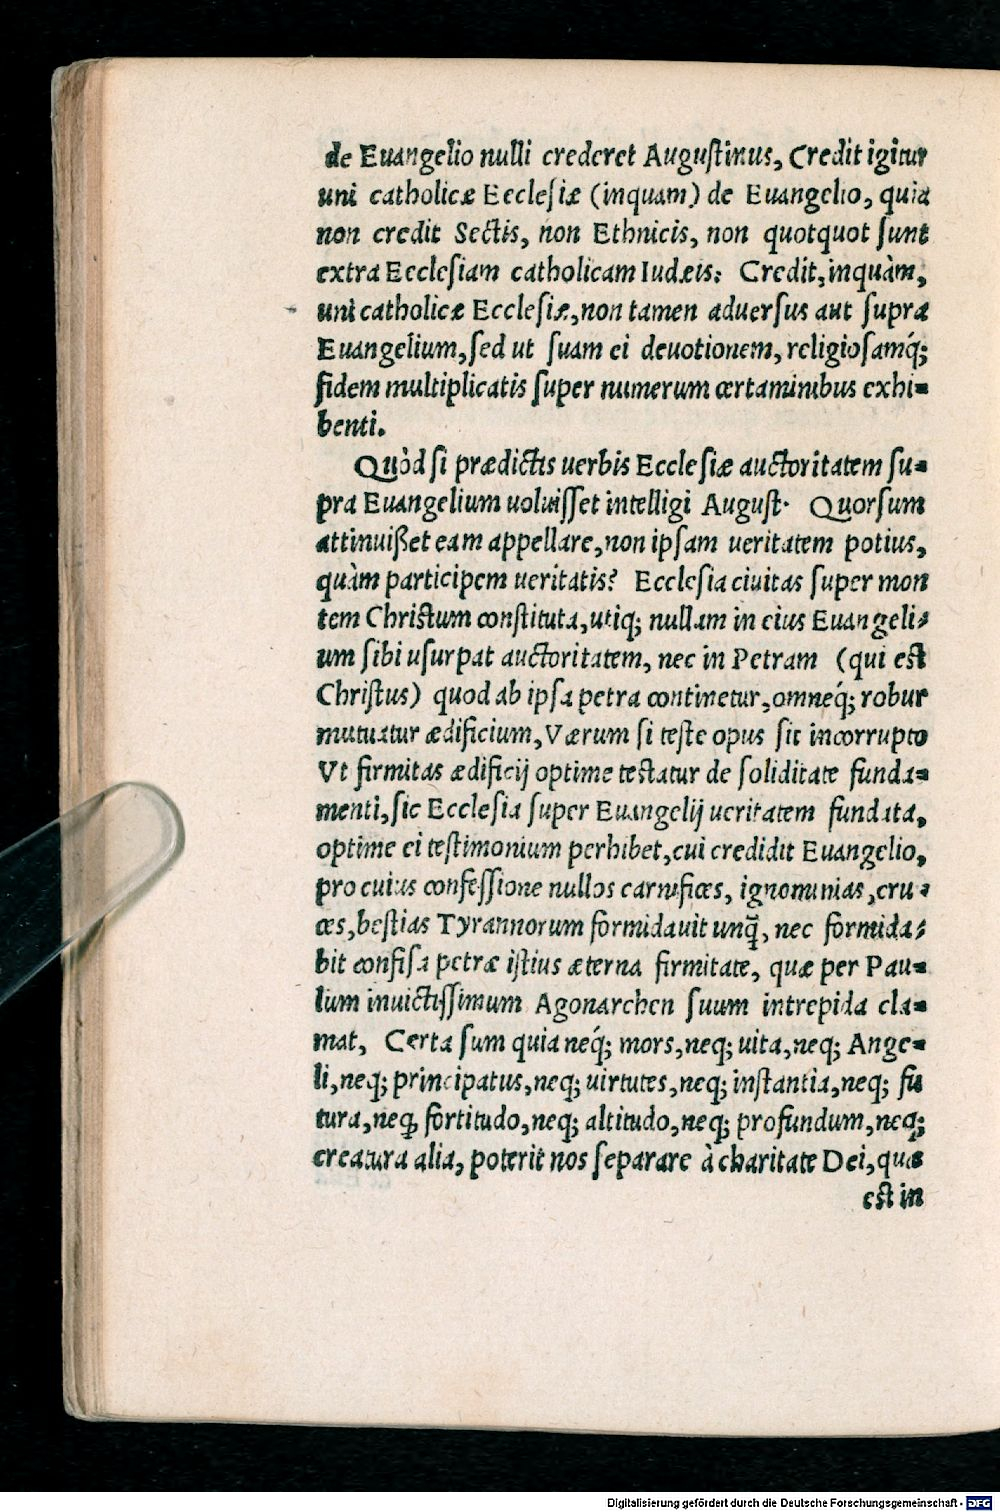 de Euangelio nulli crederet Auguſtinus, Credit igitur
uni catholicæ Eccleſiæ (inquam) de Euangelio, quia
non credit Sectis, non Ethnicis, non quotquot ſunt
extra Eccleſiam catholicam Iudæis: Credit, inquàm,
uni catholicæ Eccleſiæ, non tamen aduerſus aut ſupra
Euangelium, ſed ut ſuam ei deuotionem, religioſamq́;
fidem multiplicatis ſuper numerum certaminibus exhi-
benti.
Quòd ſi prædictis uerbis Eccleſiæ auctoritatem ſu-
pra Euangelium uoluiſſet intelligi Auguſt. Quorſum
attinuißet eam appellare, non ipſam ueritatem potius,
quàm participem ueritatis? Eccleſia ciuitas ſuper mon
tem Chriſtum conſtituta, utiq; nullam in eius Euangeli-
um ſibi uſurpat auctoritatem, nec in Petram (qui eſt
Chriſtus) quod ab ipſa petra continetur, omneq́; robur
mutuatur ædificium, Værum ſi teſte opus ſit incorrupto
Vt firmitas ædificij optime teſtatur de ſoliditate funda-
menti, ſic Eccleſia ſuper Euangelij ueritatem fundata,
optime ei teſtimonium perhibet, cui credidit Euangelio,
pro cuius confeſſione nullos carnifices, ignominias, cru-
ces, beſtias Tyrannorum formidauit unq̃, nec formida-
bit confiſa petræ iſtius æterna firmitate, quæ per Pau-
lum inuictiſſimum Agonarchen ſuum intrepida cla-
mat, Certa ſum quia neq́; mors, neq; uita, neq; Ange-
li, neq; principatus, neq; uirtutes, neq; inſtantia, neq; fu
tura, neq; fortitudo, neq; altitudo, neq; profundum, neq;
creatura alia, poterit nos ſeparare à charitate Dei, quæ
eſt in
Digitalisierung gefördert durch die Deutsche Forschungsgemeinschaft - DFG